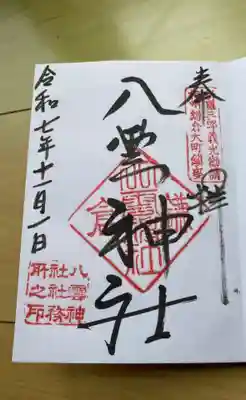 奉拝
八雲神社
令和七年十一月一日
八雲神
社社務
所之印